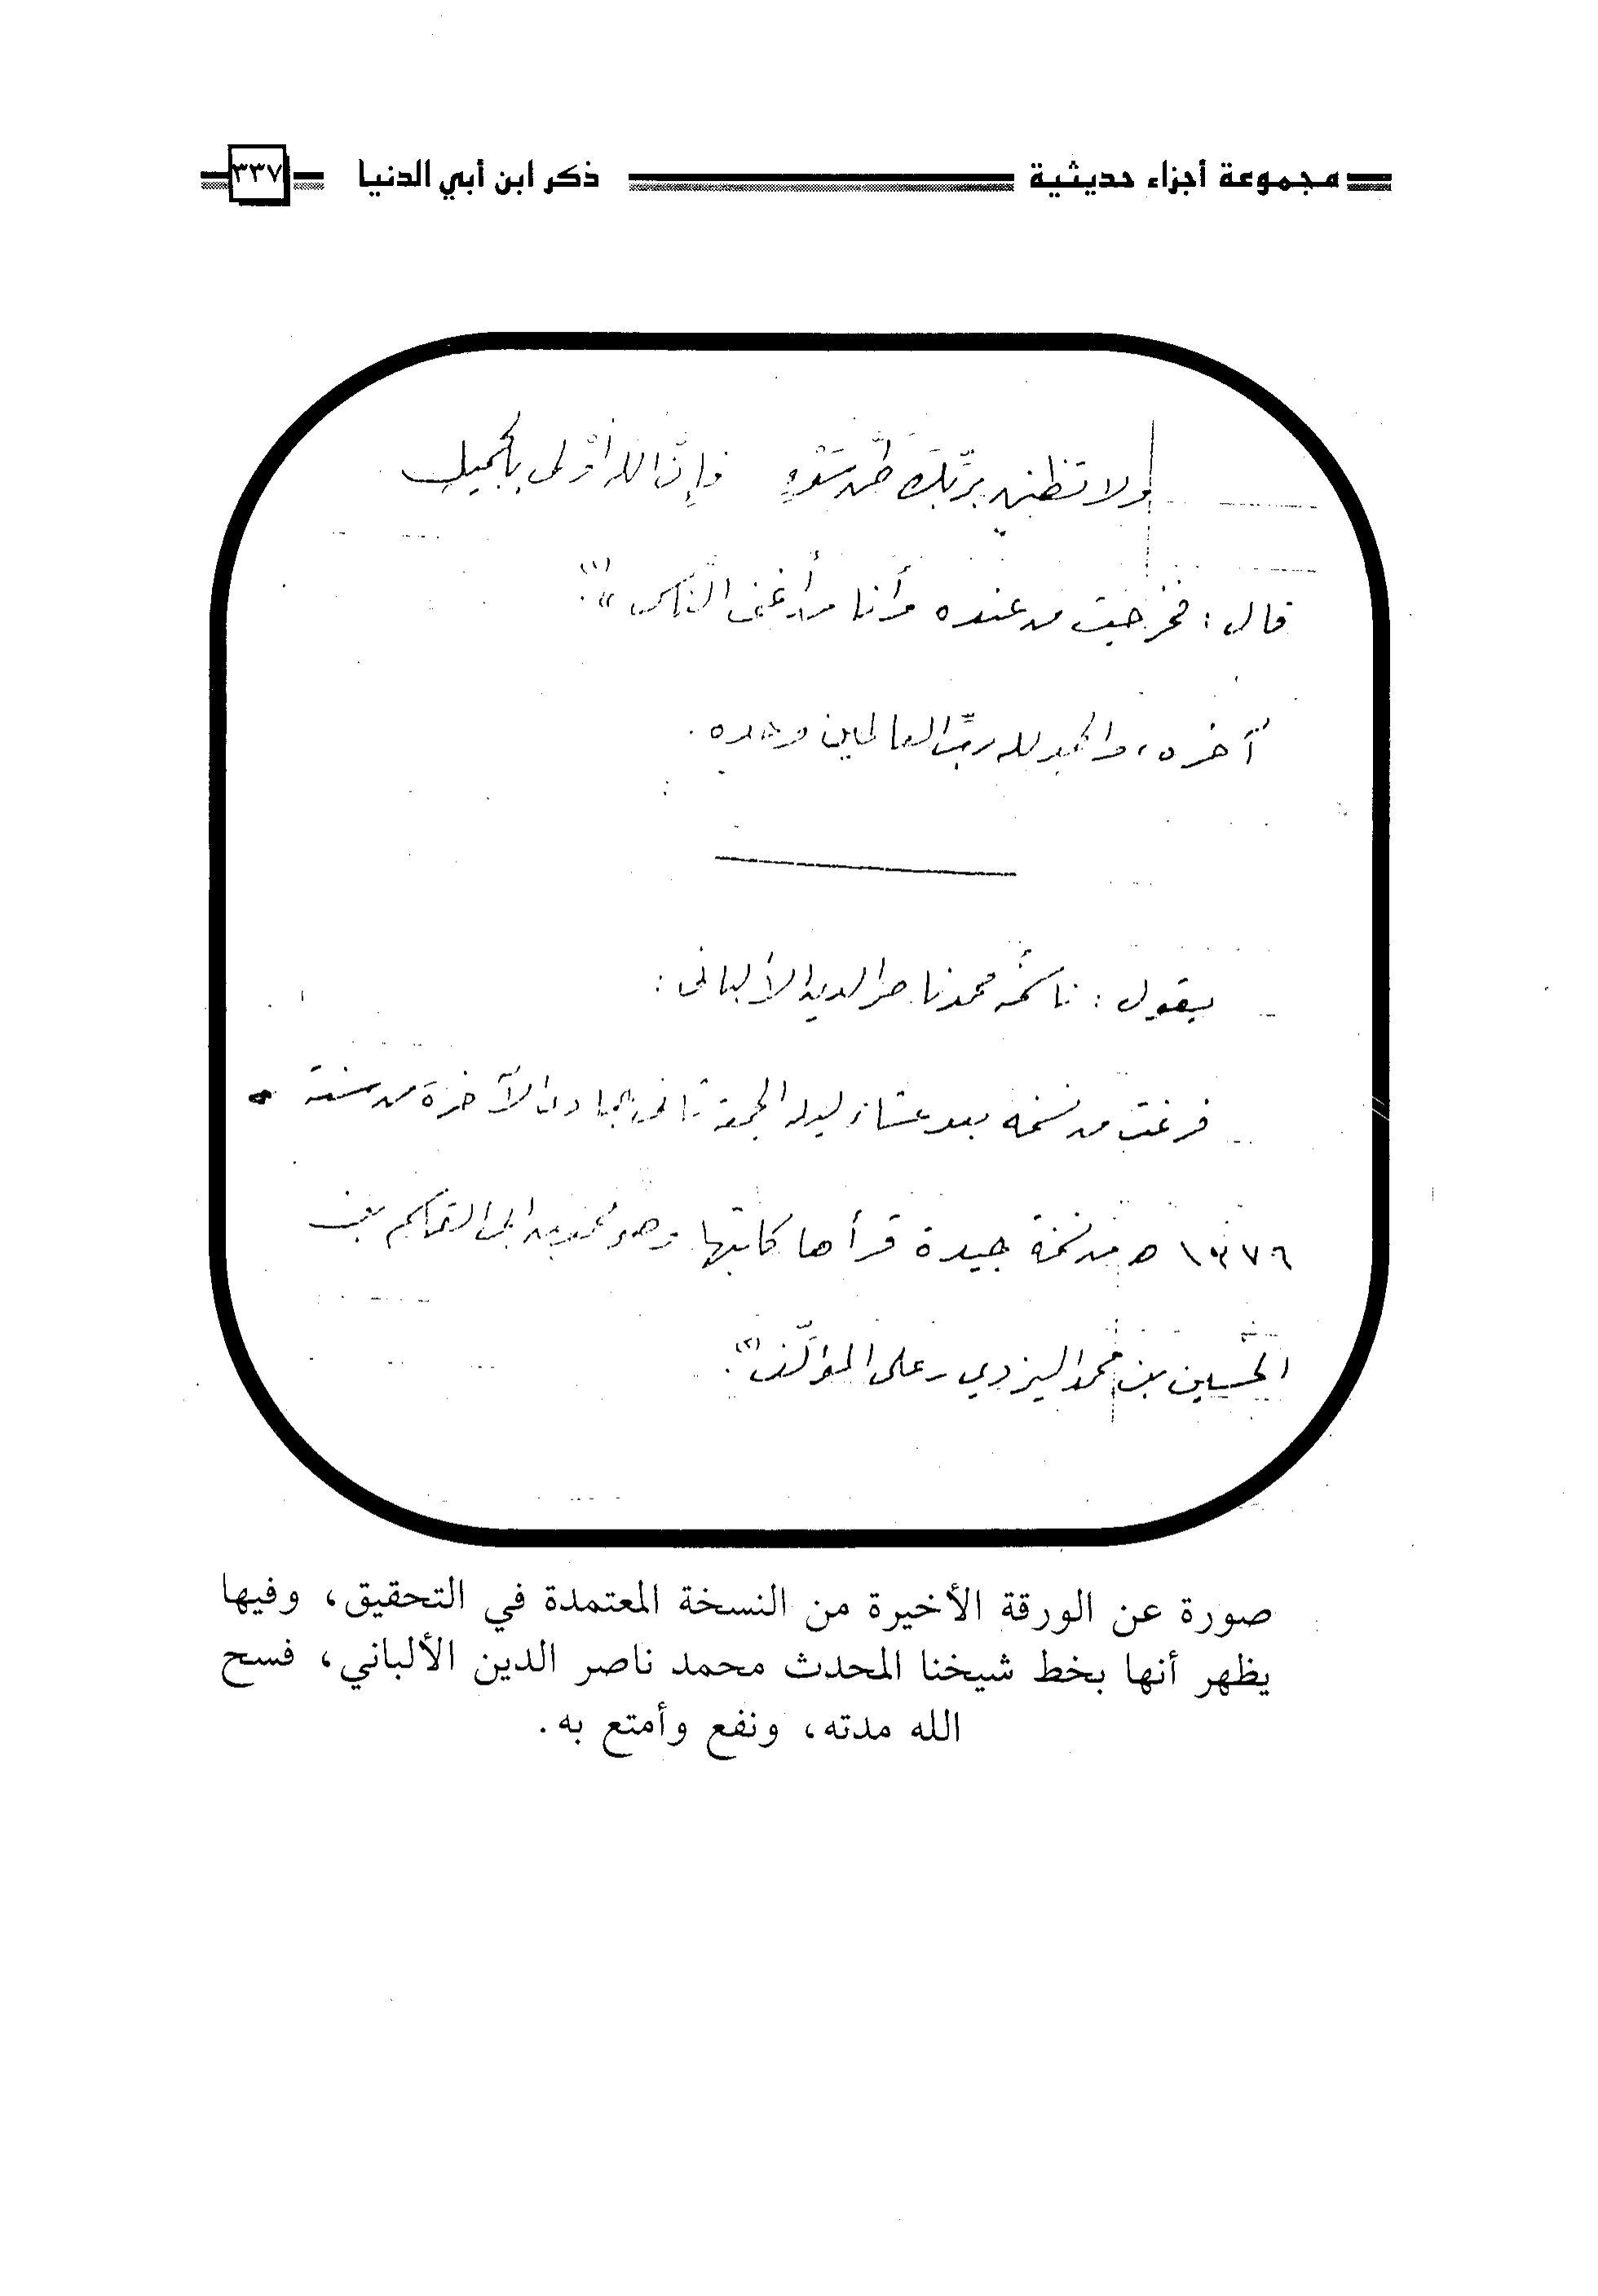 مجموعة أجزاء حديثية ذكر ابن أبي الدنيا ٣٣٧
ولا تظنن بربّكَ ظنَّ سَوْءٍ فإنّ الله أوْلى بالجميلِ
قال : فخرجت من عنده وأنا من أغنى النّاس » (١) .
آخره ، والحمد لله ربّ العالمين وحده .
يقول : ناسخُه محمد ناصر الدين الألباني :
فرغت من نسخه بعد عشاء ليلة الجمعة ثاني جمادى الآخرة من سنة
١٣٧٦ ه من نسخة جيدة قرأها كاتبها وهو محمد بن أبي القاسم بن
الحسين بن محمد اليزدي على المؤلّف (٢) .
صورة عن الورقة الأخيرة من النسخة المعتمدة في التحقيق، وفيها
يظهر أنها بخط شيخنا المحدث محمد ناصر الدين الألباني، فسح
الله مدته، ونفع وأمتع به.